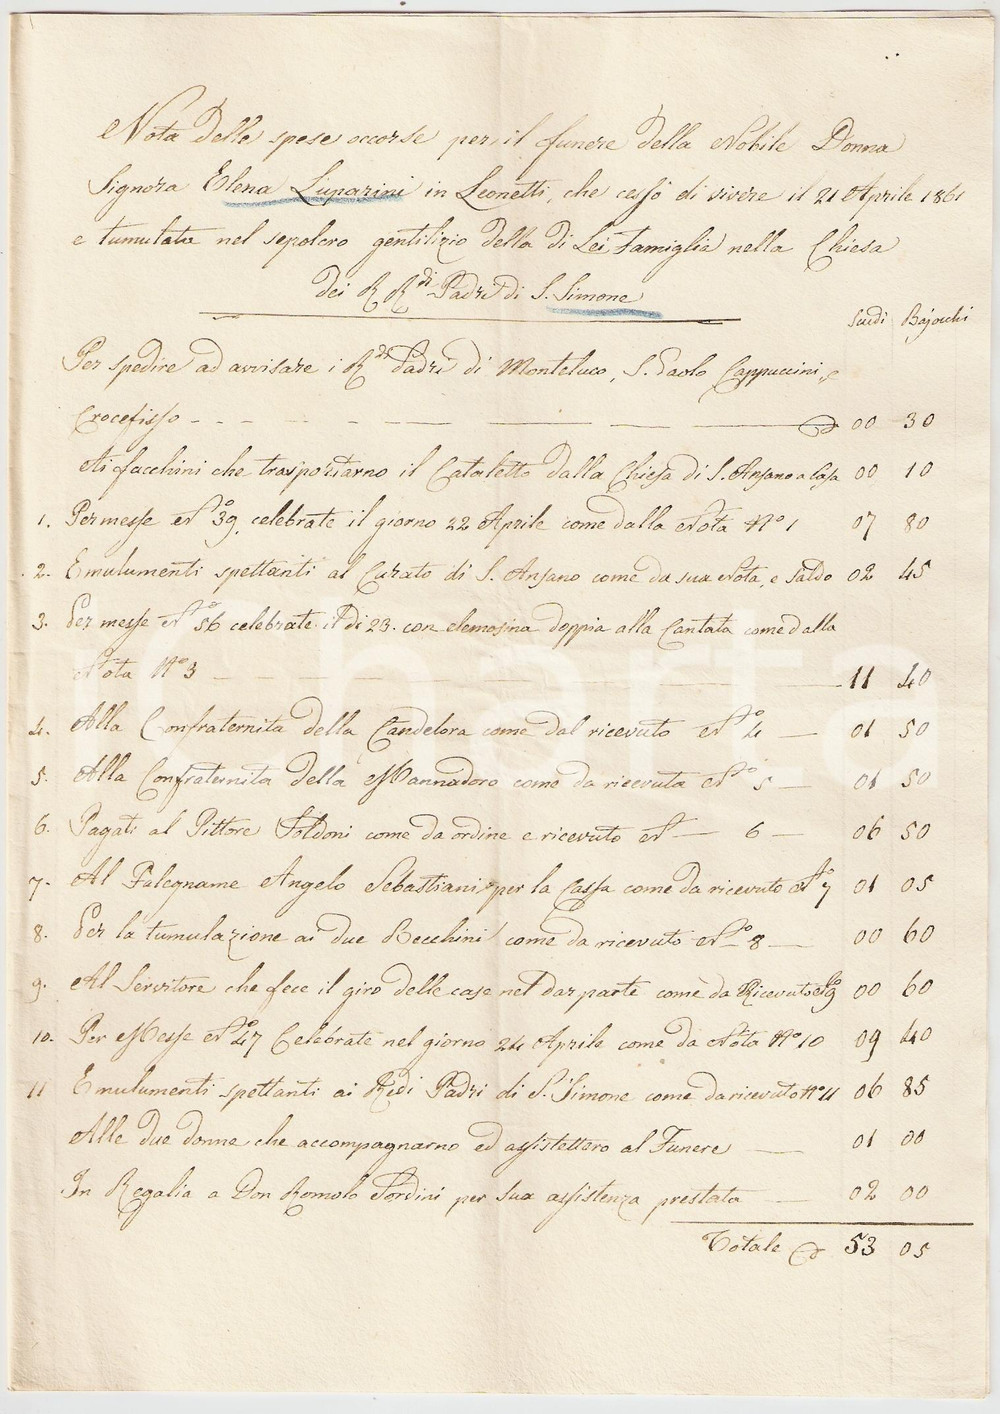 Nota delle spese occorse per il funere della Nobile Donna
Signora Elena Luparini in Leonetti, che cessò di vivere il 21 Aprile 1861
e tumulata nel sepolcro gentilizio della di Lei Famiglia nella Chiesa
dei R Rdi Padri di S. Simone
Scudi Bajocchi
Per spedire ad avvisare i Rdi Padri di Monteluco, S. Paolo Cappuccini, e
Crocefisso 00 30
Ai facchini che trasportarno il Cataletto dalla Chiesa di S. Ansano a Casa 00 10
1. Per messe No 39. celebrate il giorno 22 Aprile come dalla Nota No 1 07 80
2. Emulumenti spettanti al Curato di S. Ansano come da sua Nota, e Saldo 02 45
3. Per messe No 56 celebrate il di 23. con elemosina doppia alla Cantata come dalla
Nota No 3 11 40
4. Alla Confraternita della Candelora come dal ricevuto No 4 01 50
5. Alla Confraternita della Mannadoro come da ricevuta No 5 01 50
6. Pagati al Pittore Soldoni come da ordine e ricevuto N 6 06 50
7. Al Falegname Angelo Sebastiani per la Cassa come da ricevuto No 7 01 05
8. Per la tumulazione ai due Becchini come da ricevuto No 8 00 60
9. Al Servitore che fece il giro delle case nel dar parte come da Ricevuto No 9 00 60
10. Per Messe No 47 Celebrate nel giorno 24 Aprile come da Nota No 10 09 40
11 Emulumenti spettanti ai Rvdi Padri di S. Simone come da ricevuto No 11 06 85
Alle due donne che accompagnarno ed assistettero al Funere 01 00
In Regalia a Don Romolo Sordini per sua assistenza prestata 02 00
Totale 53 05